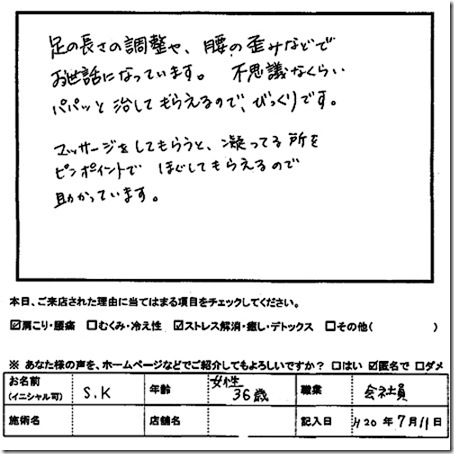 足の長さの調整や、腰の歪みなどで
お世話になっています。 不思議なくらい
パパッと治してもらえるので、びっくりです。
マッサージをしてもらうと、凝ってる所を
ピンポイントで ほぐしてもらえるので
助かっています。
本日、ご来店された理由に当てはまる項目をチェックしてください。
☑肩こり・腰痛 □むくみ・冷え性 ☑ストレス解消・癒し・デトックス □その他( )
※ あなた様の声を、ホームページなどでご紹介してもよろしいですか? □はい ☑匿名で □ダメ
お名前 (イニシャル可) S.K 年齢 女性 36歳 職業 会社員
施術名 店舗名 記入日 H20年7月11日